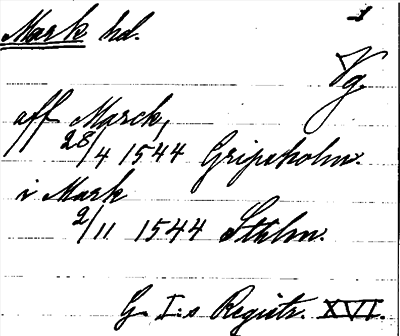 Mark hd.
1
Vg.
aff Marck,
28/4 1544 Gripsholm.
i Mark
2/11 1544 Sthlm.
G. I:s Registr. XVI.